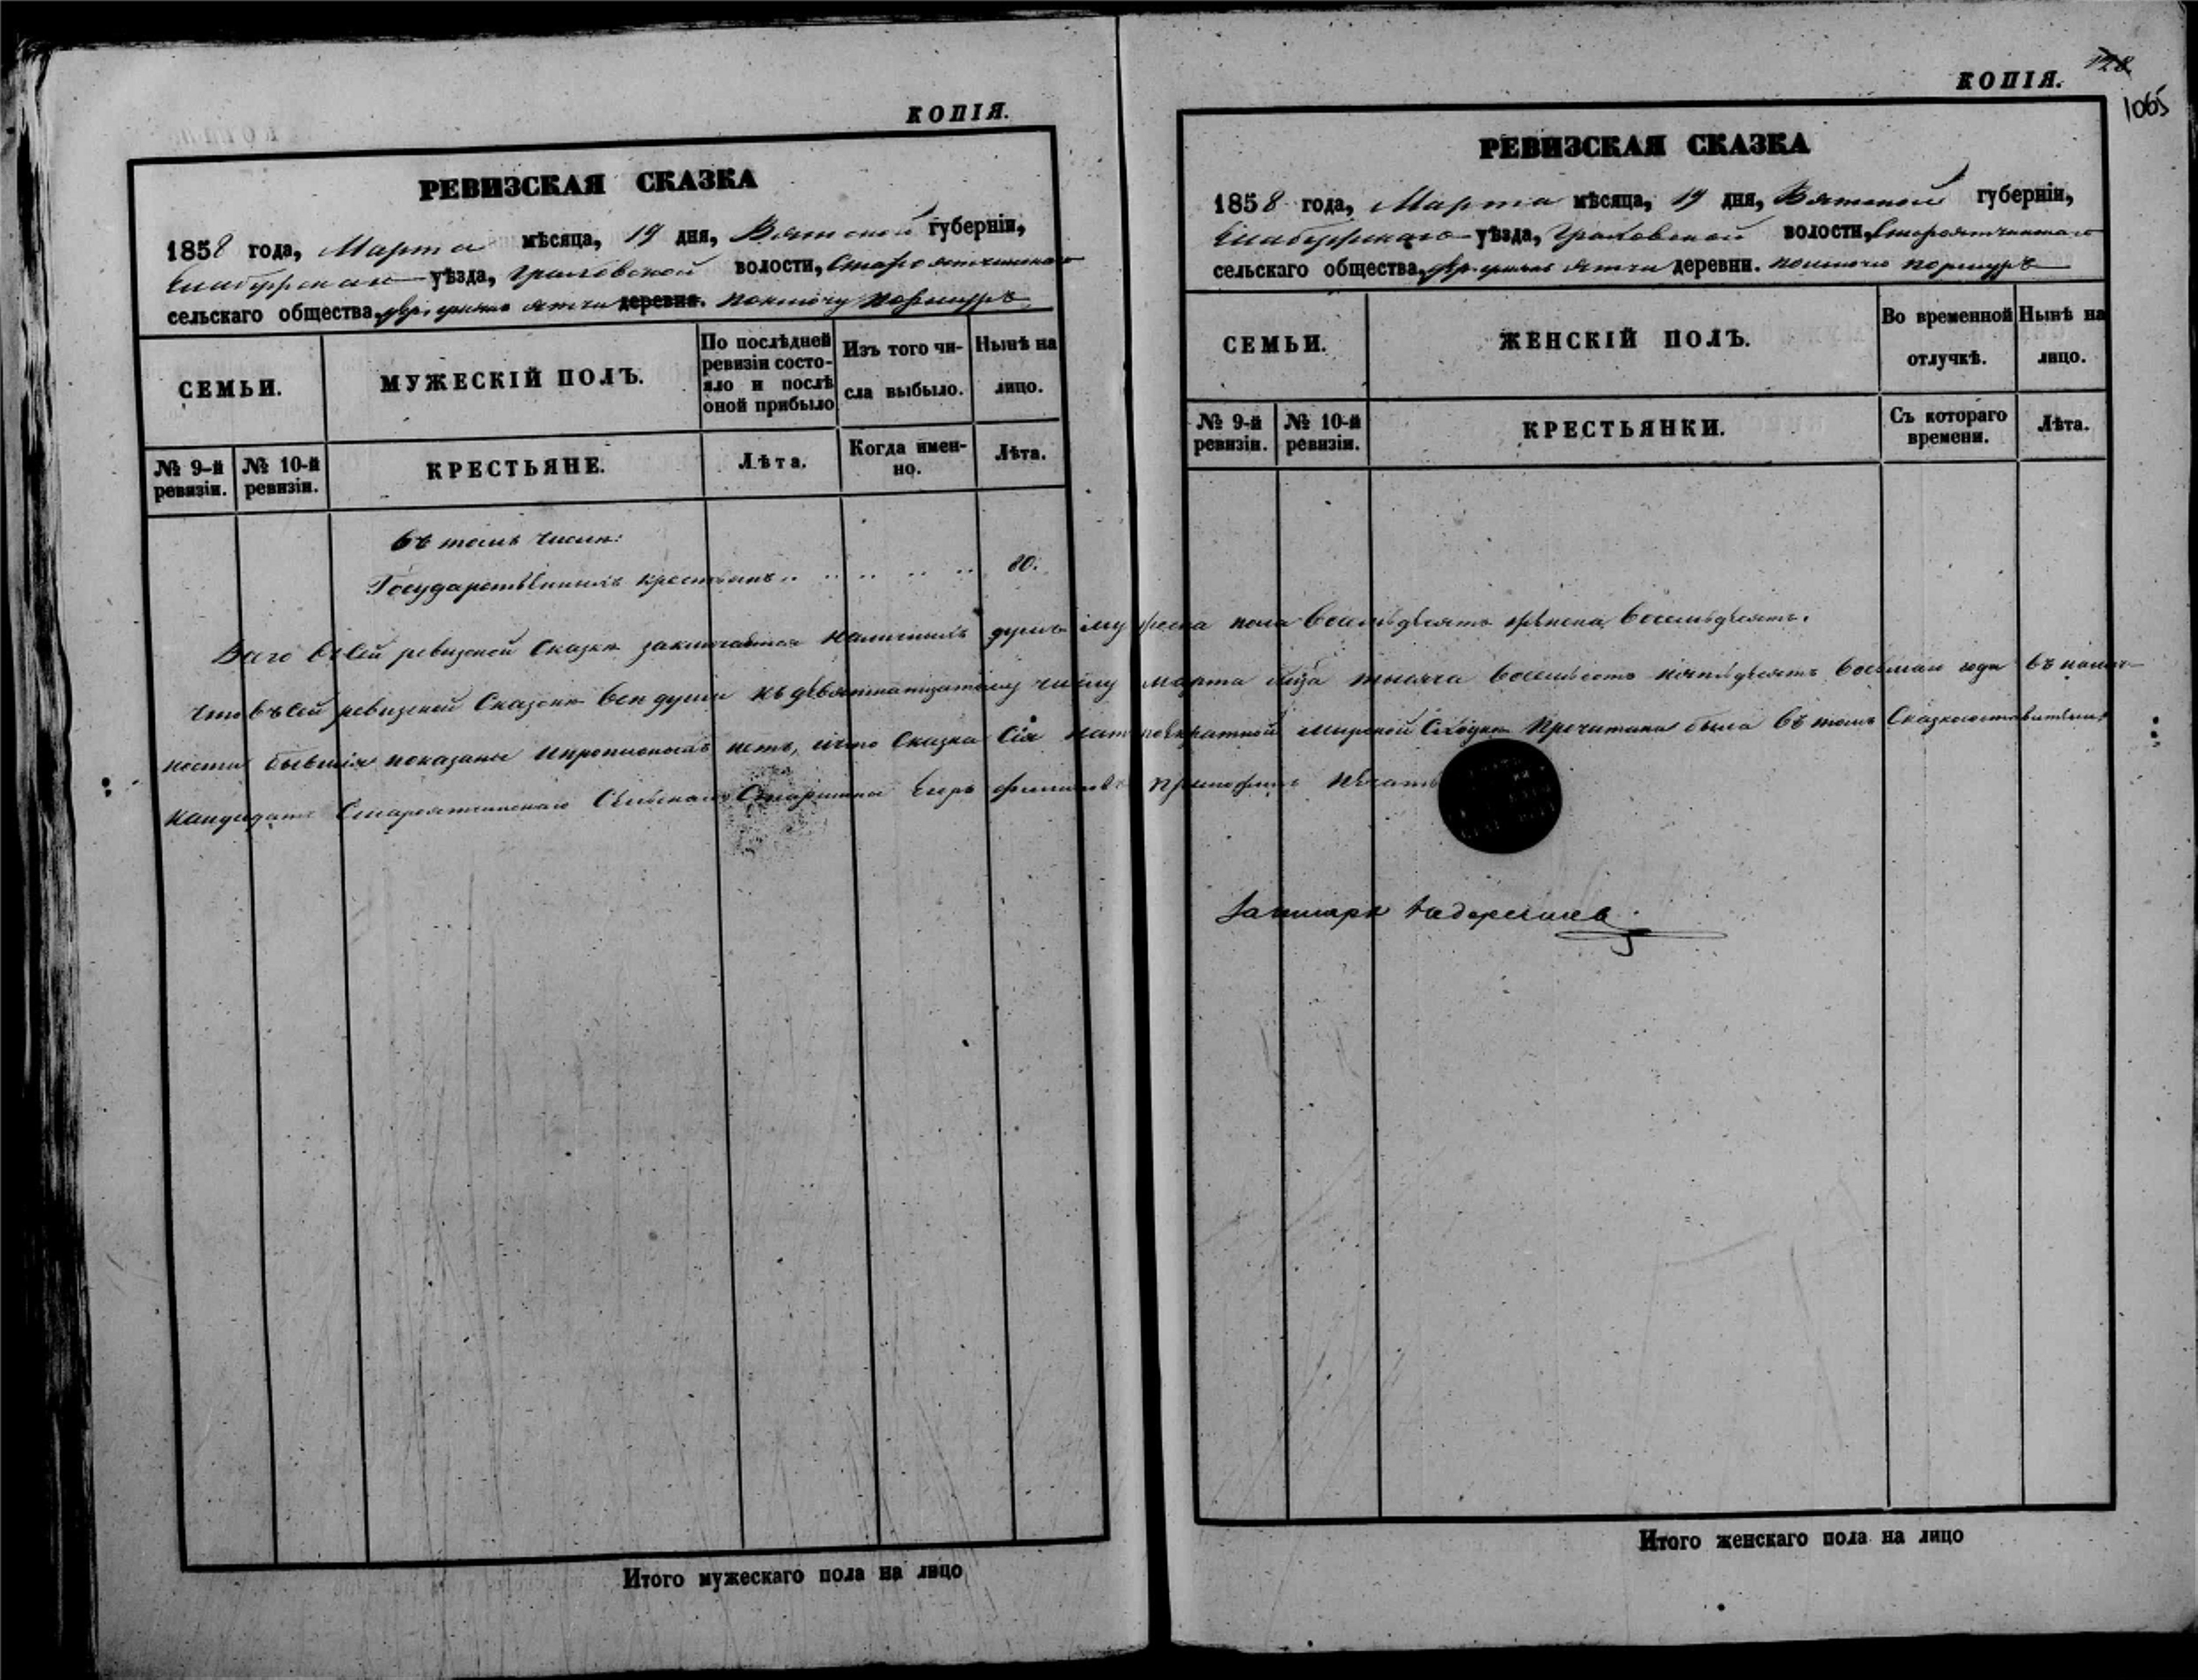 КОПІЯ.
РЕВИЗСКАЯ СКАЗКА
1858 года, Марта мѣсяца, 19 дня, Вятской губерніи,
Елабужскаго уѣзда, Граховской волости, Староятчинскаго
сельскаго общества, ятчи деревни. по ключу
СЕМЬИ.
МУЖЕСКІЙ ПОЛЪ.
По послѣдней ревизіи состояло и послѣ оной прибыло
Изъ того числа выбыло.
Нынѣ на лицо.
№ 9-й ревизіи.
№ 10-й ревизіи.
КРЕСТЬЯНЕ.
Лѣта.
Когда именно.
Лѣта.
въ томъ числѣ:
Государственныхъ крестьянъ .. .. .. .. .. 80.
Всего въ сей ревизской Сказкѣ заключается наличныхъ душъ мужеска пола восемьдесятъ женска восемьдесятъ.
что въ сей ревизской Сказкѣ всѣ души къ девятнатцатому числу марта тысяча восемьсотъ пятьдесятъ восьмаго года въ налич-
ности бывшія показаны и прописныхъ нетъ, и что Сказка Сія на мирской Сходкѣ Прочитана была въ томъ Сказкосоставитель
кандидатъ Староятчинскаго Сельскаго Старшины Егоръ приложилъ печать
Итого мужескаго пола на лицо
КОПІЯ.
128
1065
РЕВИЗСКАЯ СКАЗКА
1858 года, Марта мѣсяца, 19 дня, Вятской губерніи,
Елабужскаго уѣзда, Граховской волости, Староятчинскаго
сельскаго общества, ятчи деревни. по ключу
СЕМЬИ.
ЖЕНСКІЙ ПОЛЪ.
Во временной отлучкѣ.
Нынѣ на лицо.
№ 9-й ревизіи.
№ 10-й ревизіи.
КРЕСТЬЯНКИ.
Съ котораго времени.
Лѣта.
Итого женскаго пола на лицо